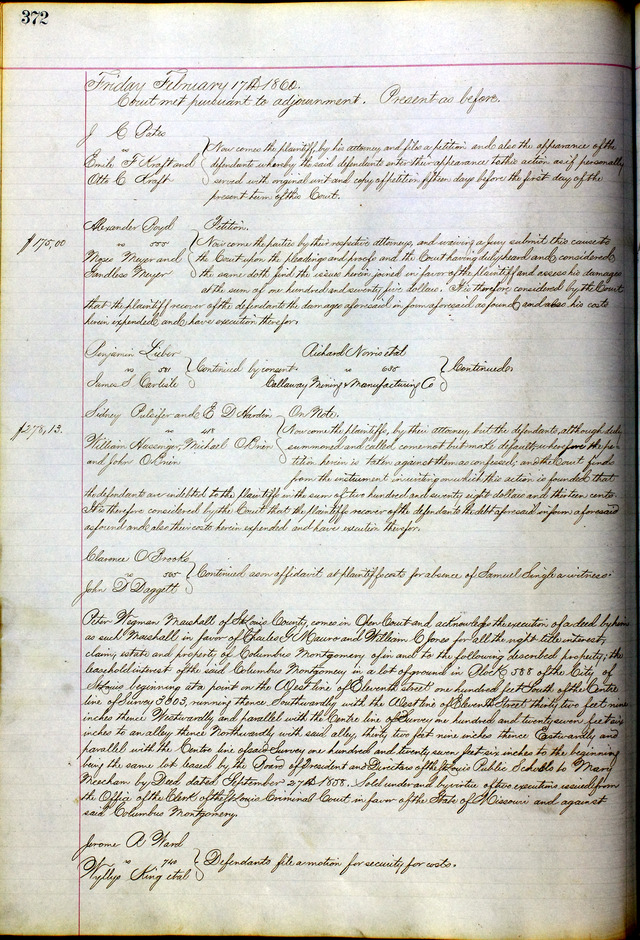 372
Friday February 17th 1860.
Court met pursuant to adjournment. Present as before.
J C Pates
vs
Emile F Kraft and
Otto C Kraft
Now comes the plaintiff, by his attorney and files a petition and also the appearance of the
defendants whereby the said defendants enter their appearance to this action as if personally
served with original writ and copy of petition, fifteen days before the first day of the
present term of this Court.
$175,00
Alexander Boyd
vs 555
Moses Meyer and
Gandless Meyer
Petition.
Now come the parties by their respective attorneys, and waiving a jury submit this cause to
the Court upon the pleadings and proofs and the Court having duly heard and considered
the same doth find the issue herein joined in favor of the plaintiff and assess his damages
at the sum of one hundred and seventy five dollars. It is therefore considered by the Court
that the plaintiff recover of the defendants the damages aforesaid in form aforesaid as found and also his costs
herein expended and have execution therefor.
Benjamin Luber
vs 581
James S Carlisle
Continued by consent
Richard Norris et al
vs 635
Callaway Mining & Manufacturing Co
Continued.
$278,13.
Sidney Pulsifer and E D Hardin
vs 418
William Hassinger, Michael O'Brien
and John O'Brien
On Note.
Now come the plaintiffs, by their attorney, but the defendants, although duly
summoned and called, come not but make default; wherefore the pe-
tition herein is taken against them as confessed; and the Court finds
from the instrument in writing on which this action is founded that
the defendants are indebted to the plaintiffs in the sum of two hundred and seventy eight dollars and thirteen cents.
It is therefore considered by the Court that the plaintiffs recover of the defendants the debt aforesaid in form aforesaid
as found and also their costs herein expended and have execution therefor.
Clarence O Brooks
vs 565
John D Daggett
Continued as on affidavit at plaintiffs costs for absence of Samuel Single a witness.
Peter Wegman Marshall of St Louis County, comes in Open Court and acknowledges the execution of a deed by him
as such Marshall in favor of Charles G Mauro and William C Jones for all the right title interest,
claim, estate and property of Columbus Montgomery of in and to the following described property; the
leasehold interest of the said Columbus Montgomery in a lot of ground in Block 588 of the City of
St Louis beginning at a point on the West line of Eleventh street one hundred feet South of the Centre
line of Survey 3303, running thence Southwardly with the West line of Eleventh Street thirty two feet nine
inches thence Westwardly and parallel with the Centre line of Survey one hundred and twenty seven feet six
inches to an alley thence Northwardly with said alley, thirty two feet nine inches thence Eastwardly and
parallel with the Centre line of said Survey one hundred and twenty seven feet six inches to the beginning
being the same lot leased by the Board of President and Directors of the St Louis Public Schools to Mary
Meecham by Deed dated September 27th 1858. Sold under and by virtue of two executions issued from
the Office of the Clerk of the St Louis Criminal Court in favor of the State of Missouri and against
said Columbus Montgomery.
Jerome A Ward
vs 740
Wyllys King et al
Defendants file a motion for security for costs.